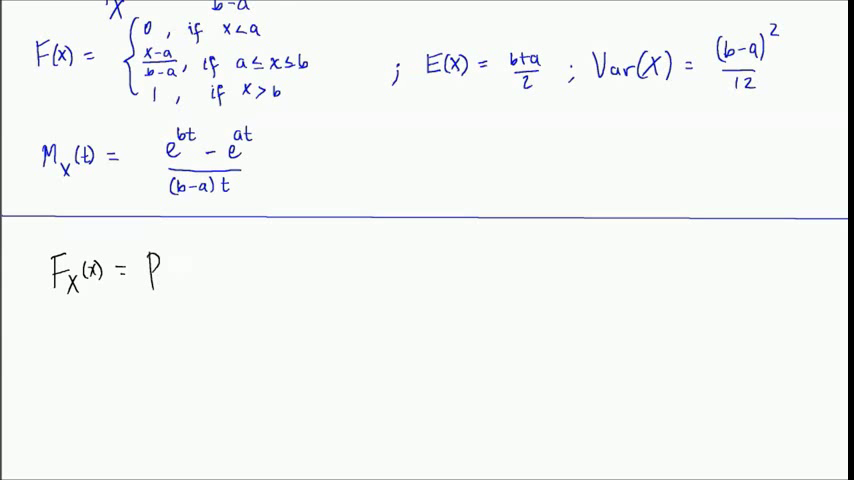 X b-a
F(x) = { 0, if x<a
x-a/b-a, if a≤x≤b ; E(X) = b+a/2 ; Var(X) = (b-a)²/12
1, if x>b
M_X(t) = e^bt - e^at / (b-a)t
F_X(x) = P